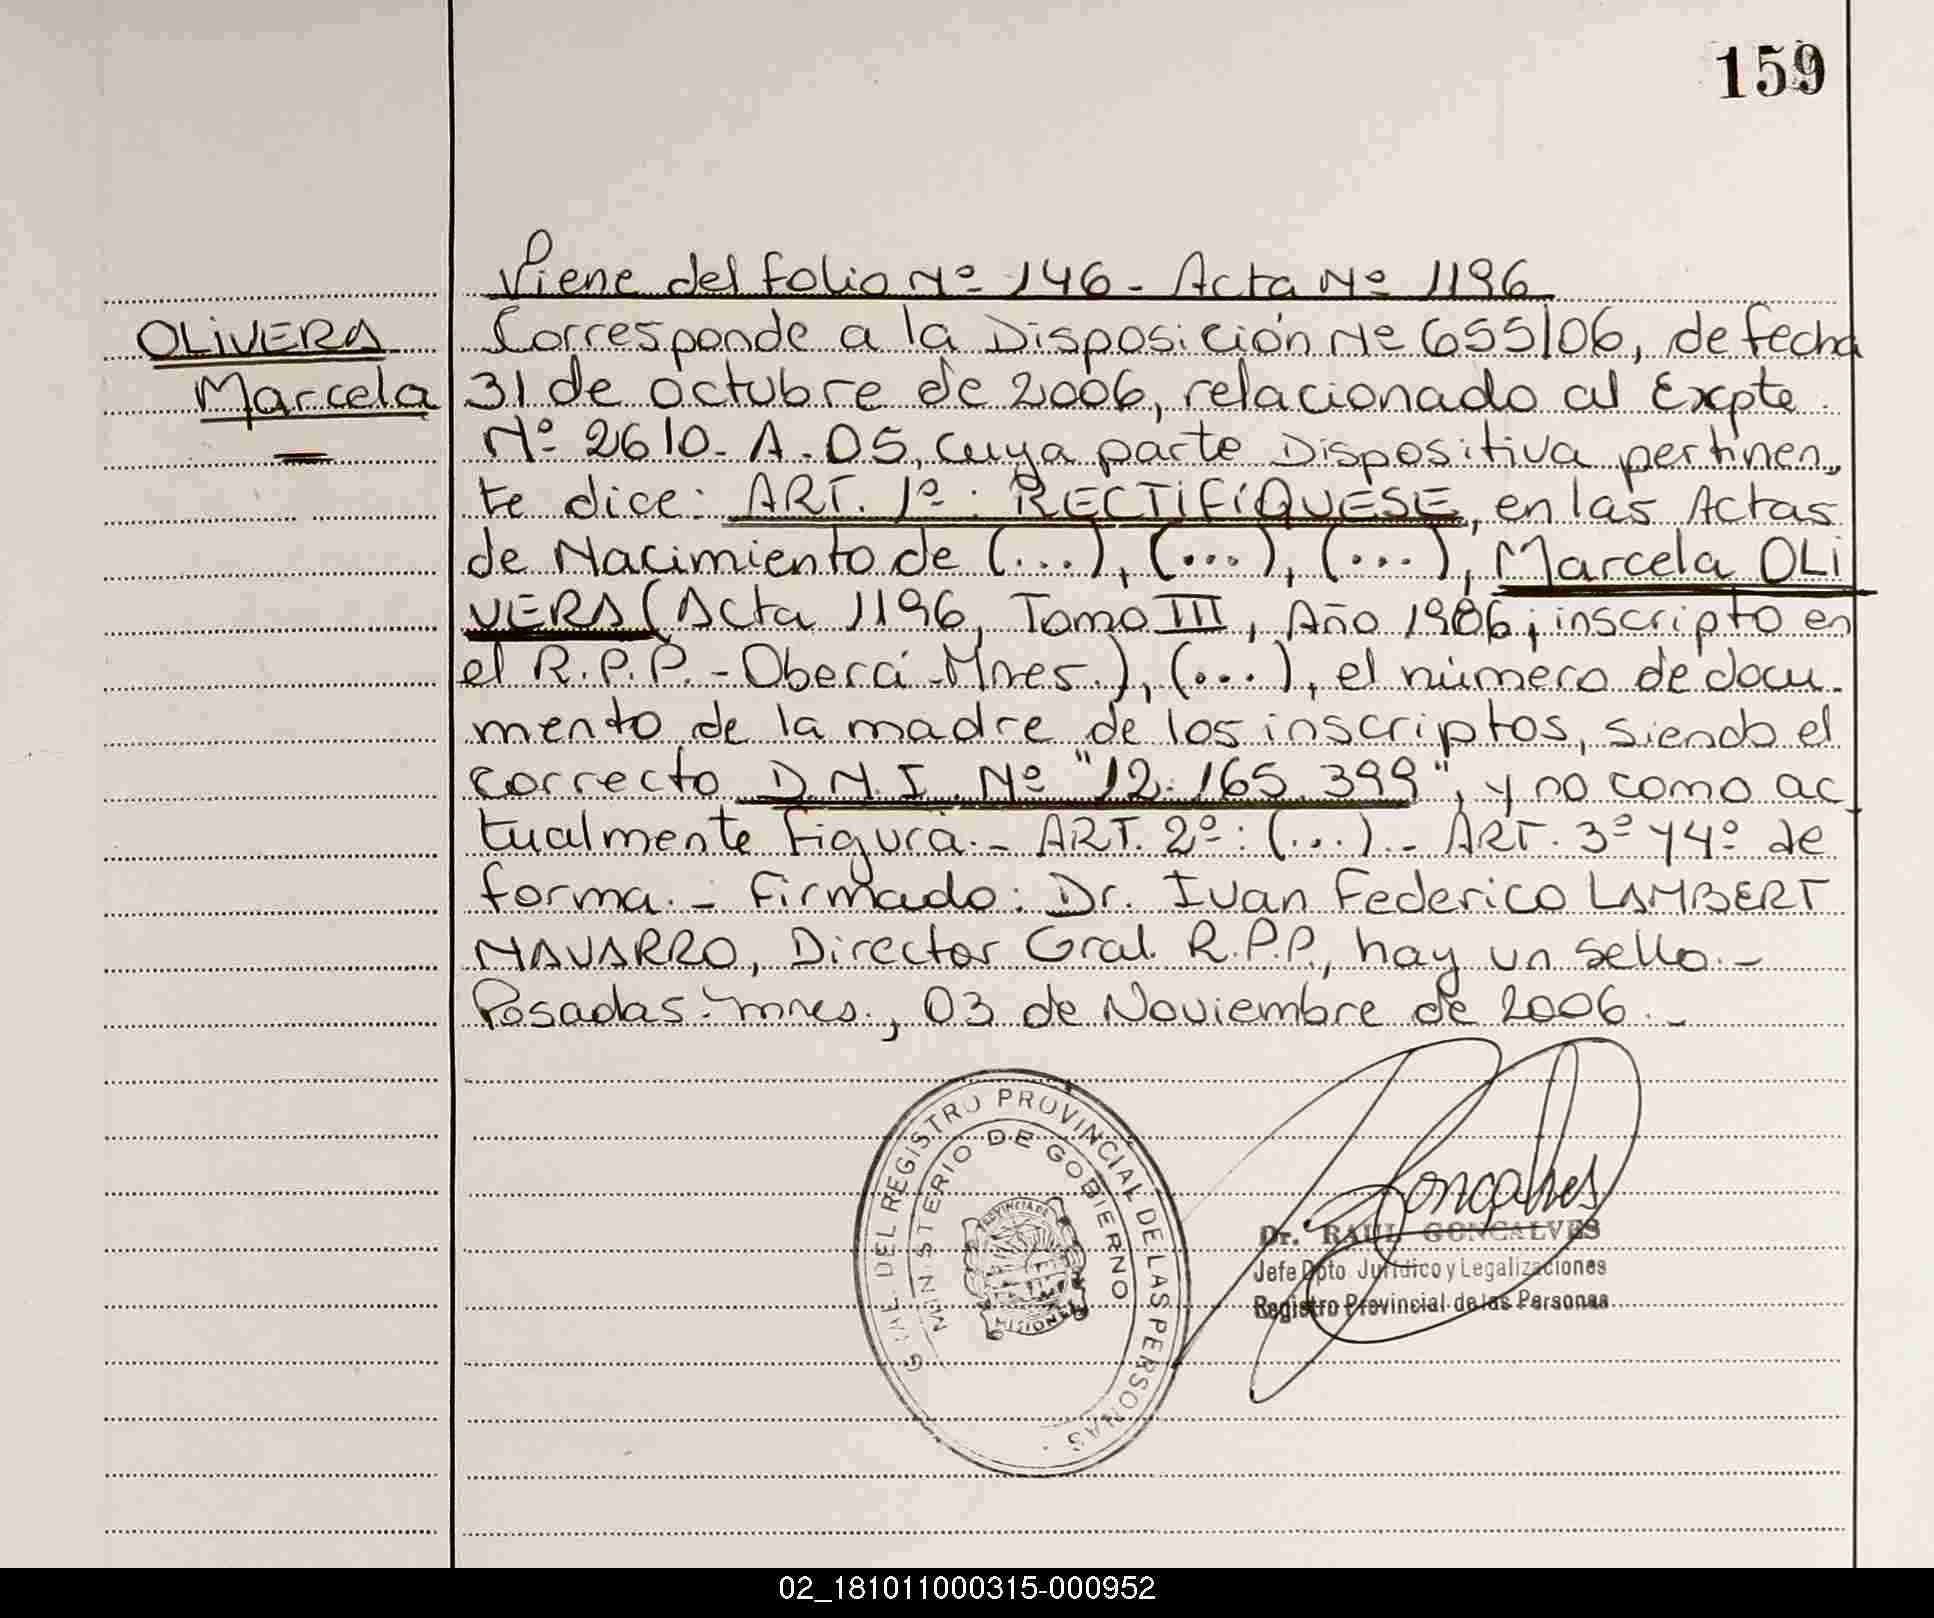 159
Viene del folio Nº 146 - Acta Nº 1196
OLIVERA
Marcela
Corresponde a la Disposición Nº 655/06, de fecha
31 de octubre de 2006, relacionado al Expte.
Nº 2610 - A - 05, cuya parte Dispositiva pertinen-
te dice: ART. 1º: RECTIFÍQUESE, en las Actas
de Nacimiento de (...), (...), (...), Marcela OLI
VERA (Acta 1196, Tomo III, Año 1986, inscripto en
el R.P.P. - Oberá - Mnes.), (...), el número de docu-
mento de la madre de los inscriptos, siendo el
correcto D.N.I. Nº "12.165.399", y no como ac
tualmente figura. - ART. 2º: (...) - ART. 3º y 4º de
forma. - Firmado: Dr. Ivan Federico LAMBERT
NAVARRO, Director Gral. R.P.P., hay un sello. -
Posadas - Mnes., 03 de Noviembre de 2006. -
DEL REGISTRO PROVINCIAL DE LAS PERSONAS
MINISTERIO DE GOBIERNO
PROVINCIA DE
MISIONES
Goncalves
Dr. RAUL GONCALVES
Jefe Dpto Jurídico y Legalizaciones
Registro Provincial de las Personas
02_181011000315-000952